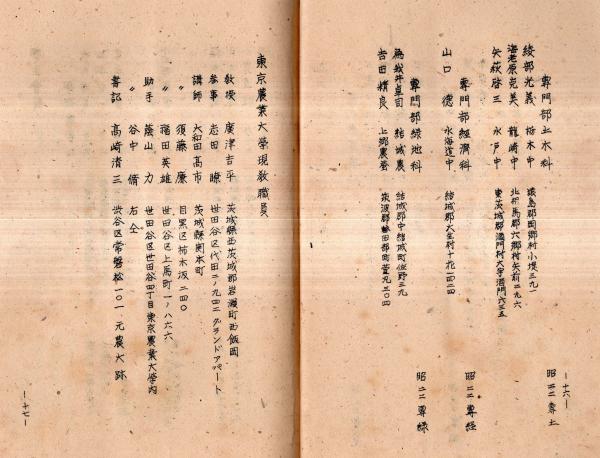 専門部土木科
綾部光義 栃木中 猿島郡岡郷村小堤三九一 昭二二専土
海老原克美 龍崎中 北相馬郡六郷村矢前二九六
矢萩啓三 水戸中 東茨城郡 村大字
専門部経済科
山口 徳 水海道中 結城郡大生村十花二四二四 昭二二専経
専門部緑地科
為我井卓 結城農 結城郡中結城町 三九
吉田精良 上郷農蚕 筑波郡 田部町 三〇四 昭二二専緑
―16―
東京農業大学現教職員
教授 廣津吉平 茨城縣西茨城郡岩瀬町西飯岡
参事 志田 暸 世田谷区代田二ノ九四二グランドアパート
講師 大和田高市 茨城縣関本町
〃 須藤 廉 目黒区柿木坂二四〇
〃 福田英雄 世田谷区上馬町一ノ八六六
助手 蔭山 力 世田谷区世田谷四丁目東京農業大学内
〃 谷中 脩 右仝
書記 高崎清三 渋谷区常磐松一〇一元農大跡
―17―